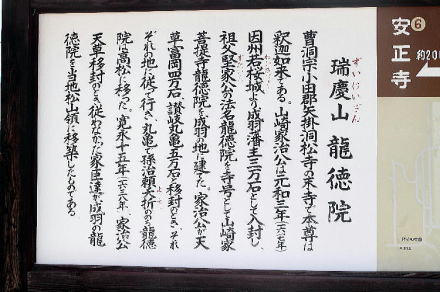 瑞慶山 龍徳院
ずいけいざん
曹洞宗小田郡矢掛洞松寺の末寺で本尊は
釈迦如来である。山崎家治公は元和三年(一六一七年)
因州若桜城より成羽藩主三万石として入封し、
祖父堅家公の法名龍徳院を寺号として山崎家
菩提寺龍徳院を成羽の地に建てた。家治公が天
草富岡四万石、讃岐丸亀五万石と移封のとき、それ
ぞれの地に従って行き、丸亀で孫治頼夭折ののち龍徳
院は高松に移った。寛永十五年(一六三八年)、家治公
天草移封のとき従わなかった家臣達が成羽の龍
徳院を当地松山領に移築したものである。
6
安正寺
約200